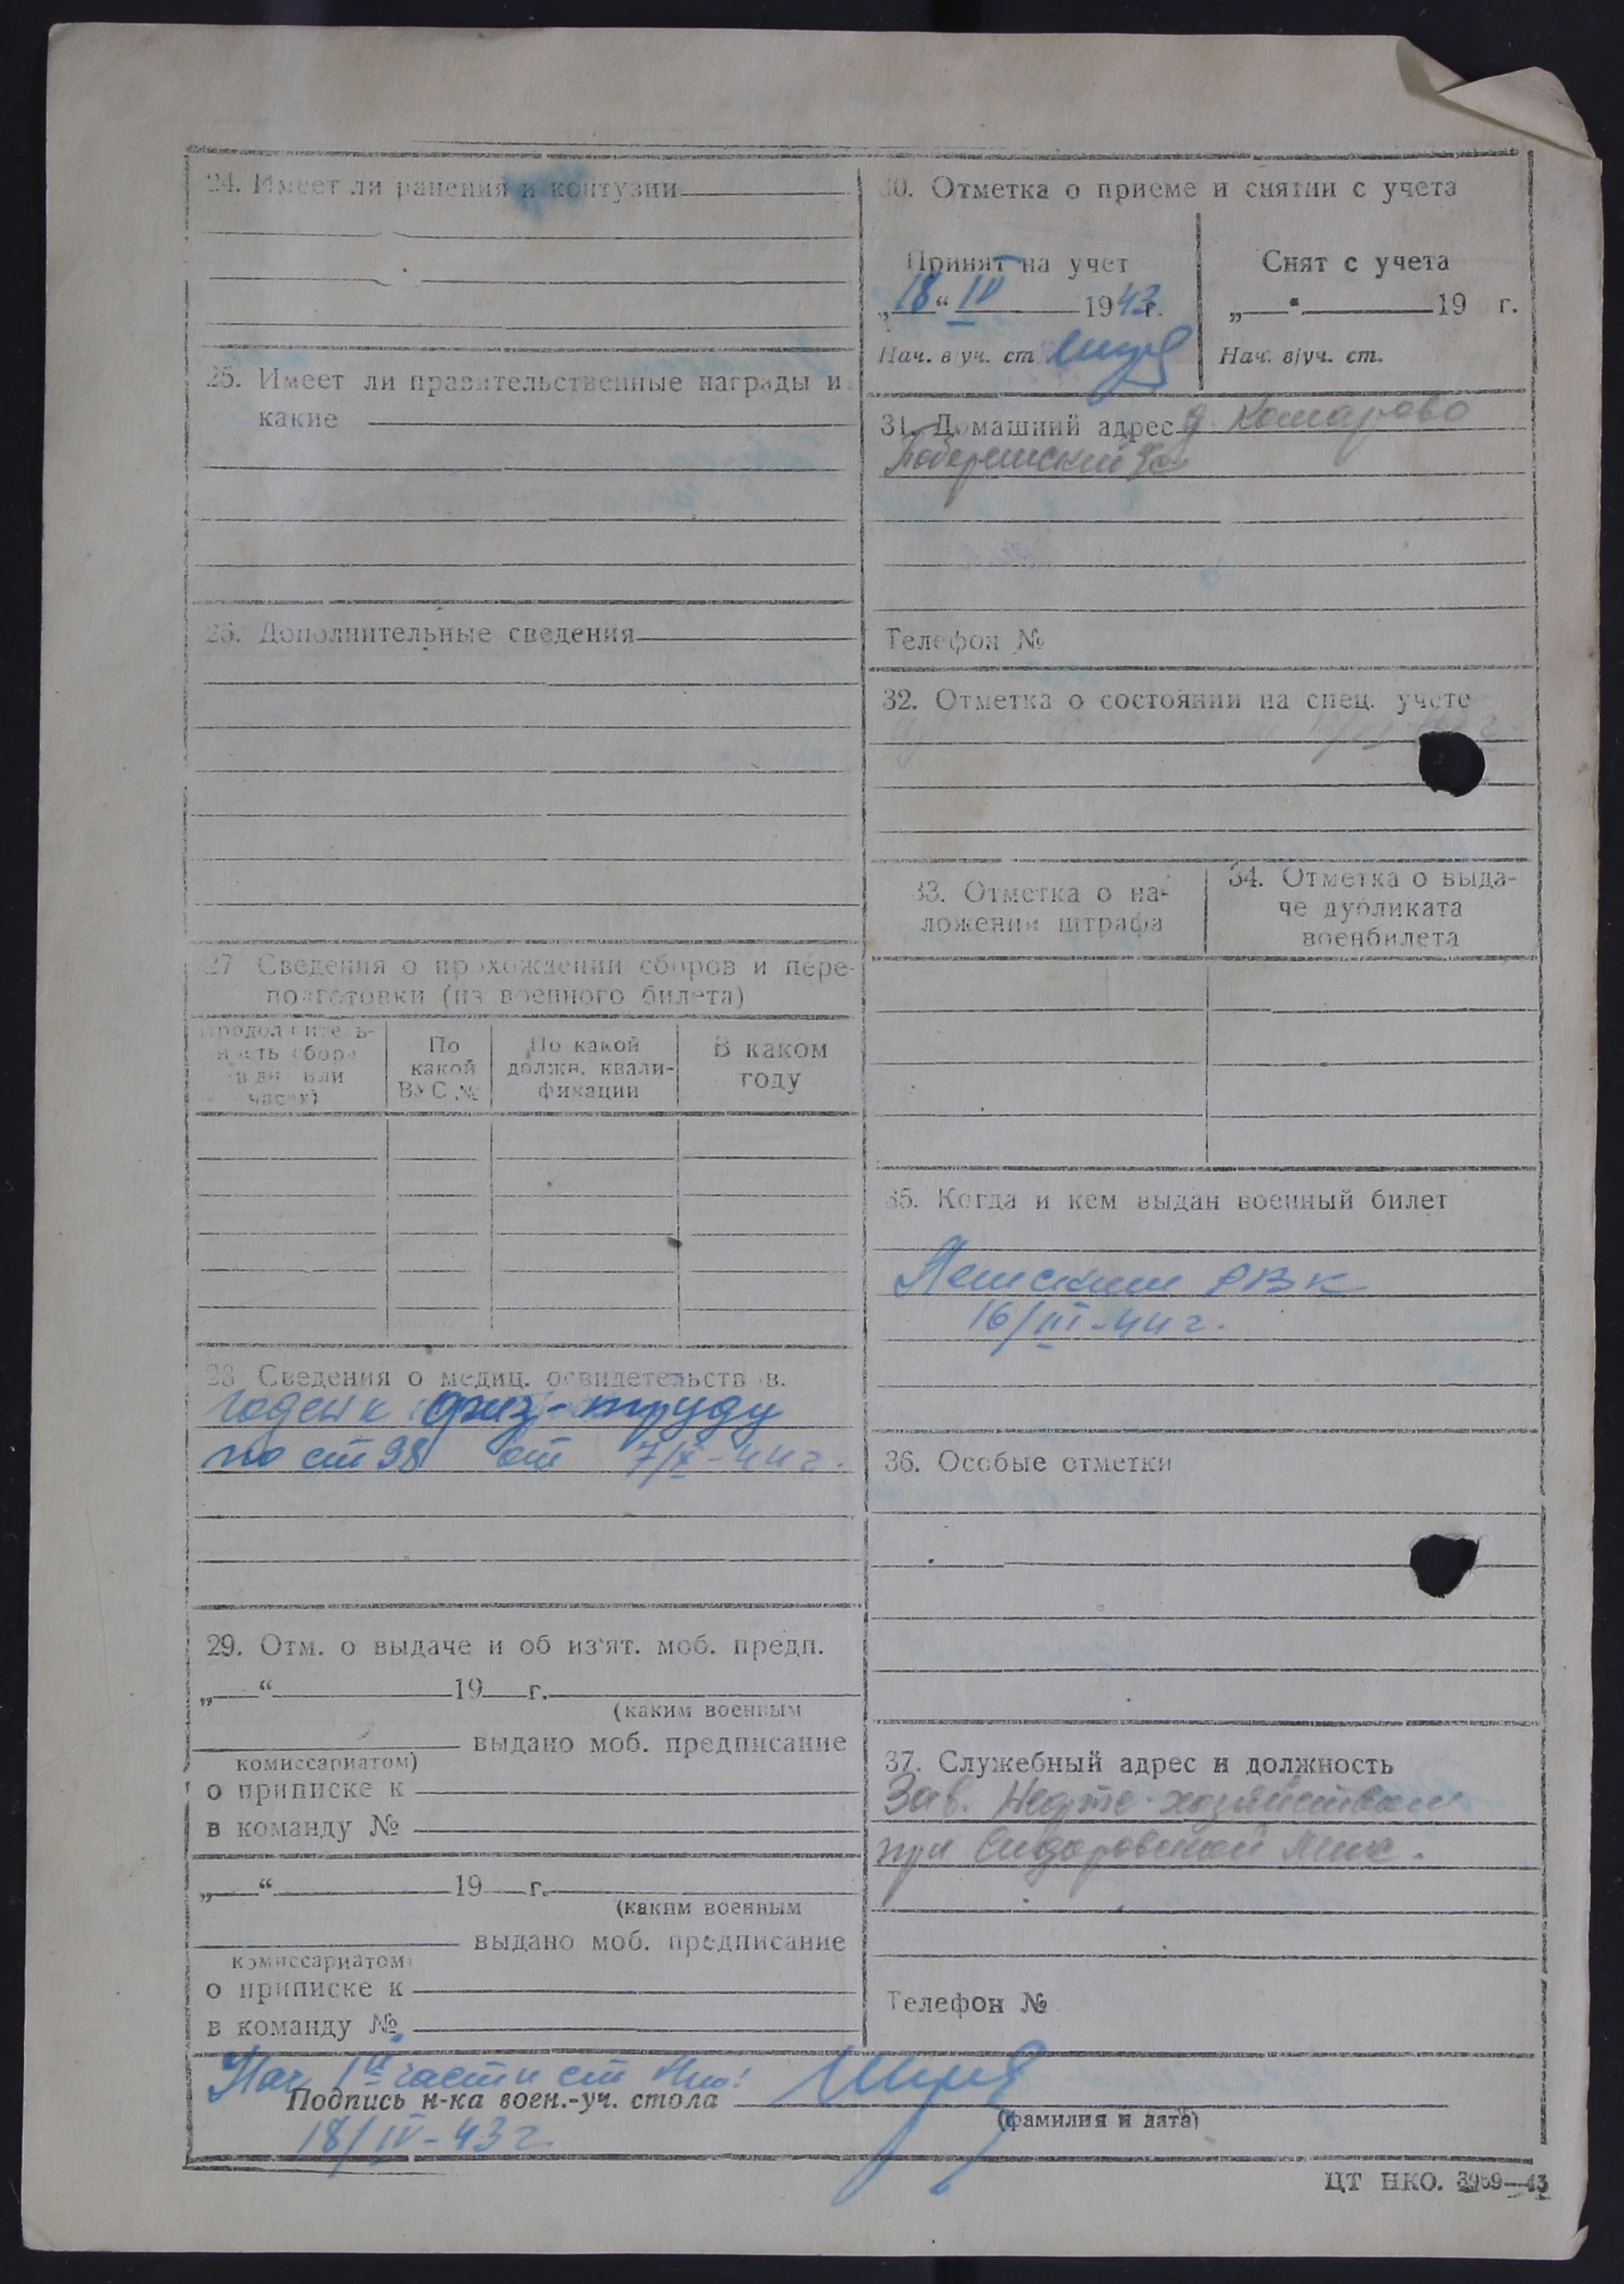 24. Имеет ли ранения и контузии
25. Имеет ли правительственные награды и
какие
26. Дополнительные сведения
27 Сведения о прохождении сборов и пере-
подготовки (из военного билета)
Продолжитель-
ность сбора
(в дн. или
часах)
По
какой
ВУС №
По какой
должн. квали-
фикации
В каком
году
28 Сведения о медиц. освидетельств в.
Годен к физ-труду
по ст 98 от 7/X-44 г.
29. Отм. о выдаче и об из'ят. моб. предп.
„ “ 19 г.
(каким военным
выдано моб. предписание
комиссариатом)
о приписке к
в команду №
„ “ 19 г.
(каким военным
выдано моб. предписание
комиссариатом)
о приписке к
в команду №
30. Отметка о приеме и снятии с учета
Принят на учет
„18“ IV 1943 г.
Нач. в/уч. ст
Снят с учета
„ “ 19 г.
Нач. в/уч. ст.
31. Домашний адрес д. Комарово
Телефон №
32. Отметка о состоянии на спец. учете
33. Отметка о на-
ложении штрафа
34. Отметка о выда-
че дубликата
военбилета
35. Когда и кем выдан военный билет
РВК
16/III-44 г.
36. Особые отметки
37. Служебный адрес и должность
Зав. Нефте-хозяйством
при Сидоровской
Телефон №
Нач 1й части ст
Подпись н-ка воен.-уч. стола
(фамилия и дата)
18/IV-43 г.
ЦТ НКО. 3959—43